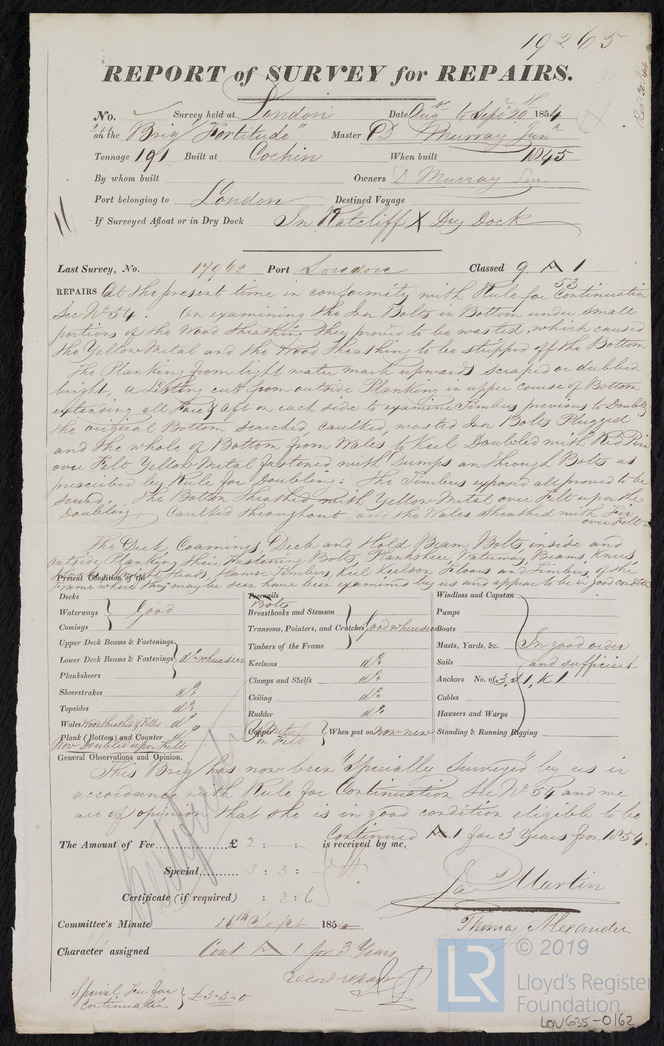 19265
REPORT of SURVEY for REPAIRS.
No. Survey held at London Date Aug to Sept 20th 1854
on the Brig "Fortitude" Master D Murray Junr
Tonnage 191 Built at Cochin When built 1845
By whom built Owners D Murray Sen
Port belonging to London Destined Voyage
If Surveyed Afloat or in Dry Dock In Ratcliff X Dry Dock
Last Survey, No. 17962 Port London Classed 9 A 1
REPAIRS At the present time in conformity with Rule for Continuation 53
See No 54. On examining the Iron Bolts in Bottom under small
portions of the Wood Sheathing they proved to be wasted, which caused
the Yellow Metal and the Wood Sheathing to be stripped off the Bottom
The Planking from light water mark upwards scraped or dubbed
bright, a Listing cut from outside Planking in upper course of Bottom
extending all Fore & Aft on each side to examine Timbers previous to Doubling
the original Bottom searched, caulked, wasted Iron Bolts Plugged
and the whole of Bottom from Wales to Keel Doubled with Rd Pine
over Felt Yellow Metal fastened with Dumps and Through Bolts as
prescribed by Rule for Doubling: The Timbers exposed all proved to be
sound. The Bottom Sheathed with Yellow Metal over Felt upon the
Doubling Caulked throughout and the Wales Sheathed with Fir
over Felt.
The Deck, Coamings, Deck and Hold Beam Bolts inside and
outside Planking their Fastening Bolts, Plansheer, Waterways, Beams, Knees,
Hawse Timbers, Keel Keelson and Timbers of the
Frame where they may be seen have been examined by us and appear to be in good condition
Present Condition of the
Decks
Waterways } Good
Comings
Upper Deck Beams & Fastenings
Lower Deck Beams & Fastenings } do where seen
Planksheers
Sheerstrakes do
Topsides do
Wales Now Sheathed & Felted do
Plank (Bottom) and Counter do
Now Doubled upon Felt
Treenails
Bolts
Breasthooks and Stemson
Transoms, Pointers, and Crutches } Good where seen
Timbers of the Frame
Keelsons do
Clamps and Shelfs do
Ceiling do
Rudder do
Copper Y Metal on Felt } When put on now new
Windlass and Capstan
Pumps
Boats
Masts, Yards, &c. In good order
Sails and sufficient
Anchors No. of 3, S 1, K 1
Cables
Hawsers and Warps
Standing & Running Rigging
General Observations and Opinion,
This Brig has now been "Specially Surveyed" by us in
accordance with Rule for Continuation See No 54 and we
are of opinion that she is in good condition eligible to be
Continued A. 1 for 3 Years from 1854.
The Amount of Fee £ 2 : is received by me,
Special 3 : 3 :
Certificate (if required) : 2 : 6
Js Martin
Thomas Alexander
Committee's Minute 26th Sept 1854
Character assigned Cont A 1 for 3 Years
Special Fee for
Continuation } £3-3-0
© 2019
LR
Lloyd's Register
Foundation
LOU635-0162